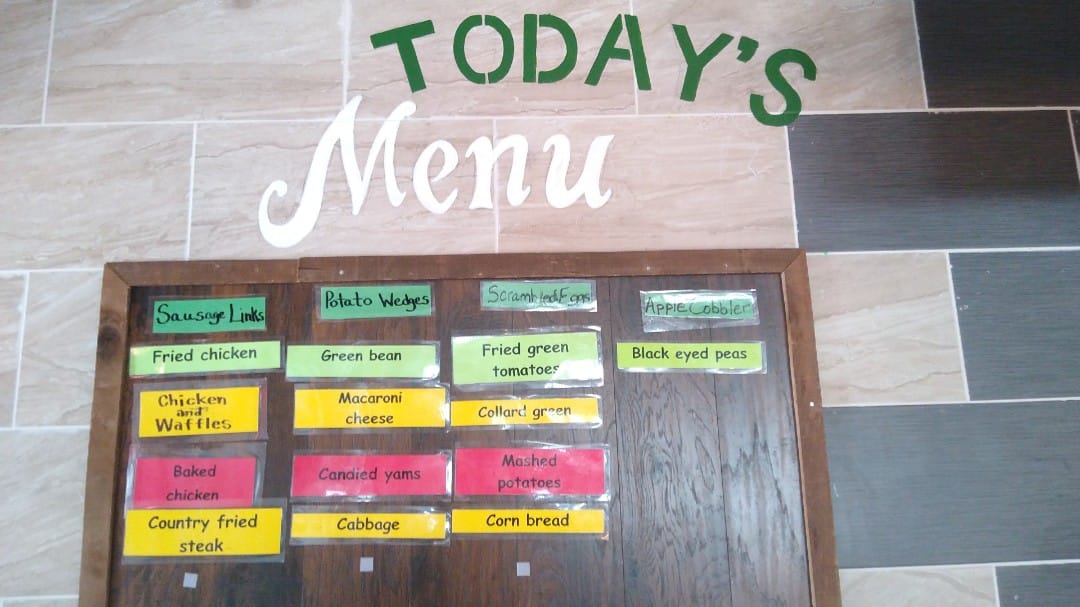 TODAY'S
Menu
Sausage Links
Potato Wedges
Scrambled Eggs
Apple Cobbler
Fried chicken
Green bean
Fried green
tomatoes
Black eyed peas
Chicken
and
Waffles
Macaroni
cheese
Collard green
Baked
chicken
Candied yams
Mashed
potatoes
Country fried
steak
Cabbage
Corn bread